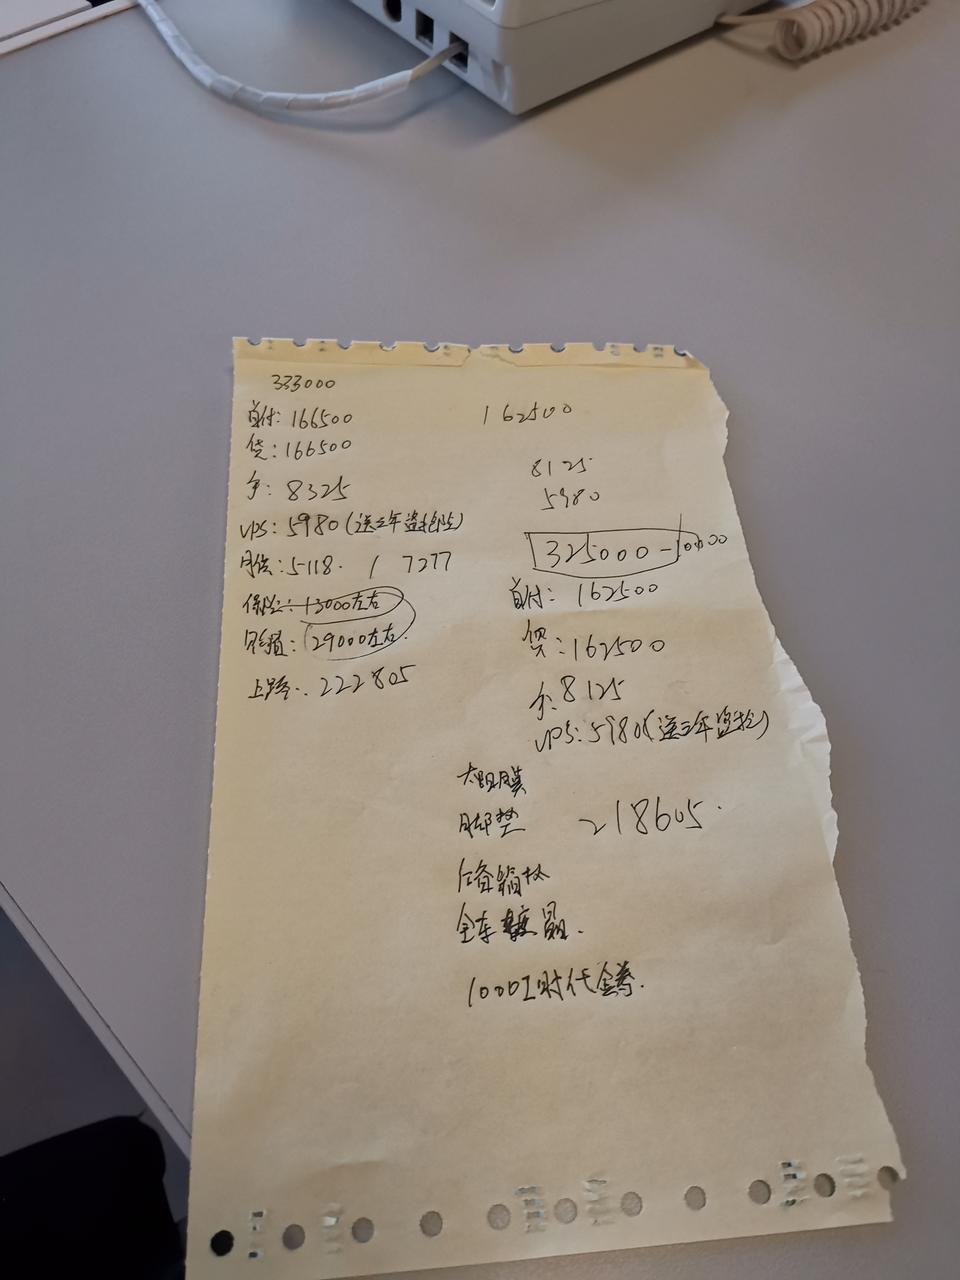 333000
首付: 166500
贷: 166500
手: 8325
VPS: 5980(送三年盗抢险)
月供: 5118. / 7277
保险: 13000左右
购置: 29000左右.
上路: 222805
162500
8125
5980
325000-10000
首付: 162500
贷: 162500
手: 8125
VPS: 5980(送三年盗抢)
太阳膜
脚垫 218605.
后备箱
全车镀晶.
1000工时代金券.